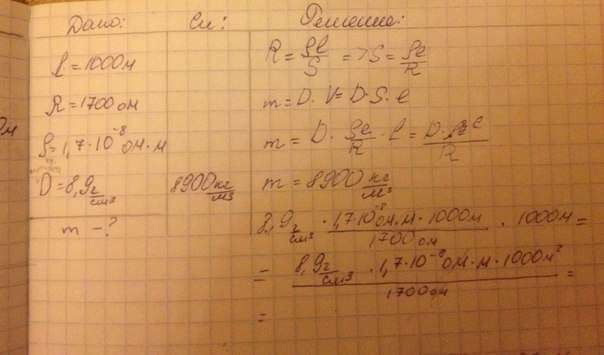 Дано:
Си:
Решение:
l = 1000м
R = 1700 ом
ρ = 1,7·10⁻⁸ ом·м
D = 8,9 г/см³
8900 кг/м³
m - ?
R = ρl/S => S = ρl/R
m = D·V = D·S·l
m = D · ρl/R · l =
m = 8900 кг/м³
8,9 г/см³ · 1,7·10⁻⁸ ом·м·1000м/1700 ом · 1000м =
= 8,9 г/см³ · 1,7·10⁻⁸ ом·м·1000м²/1700 ом =
=